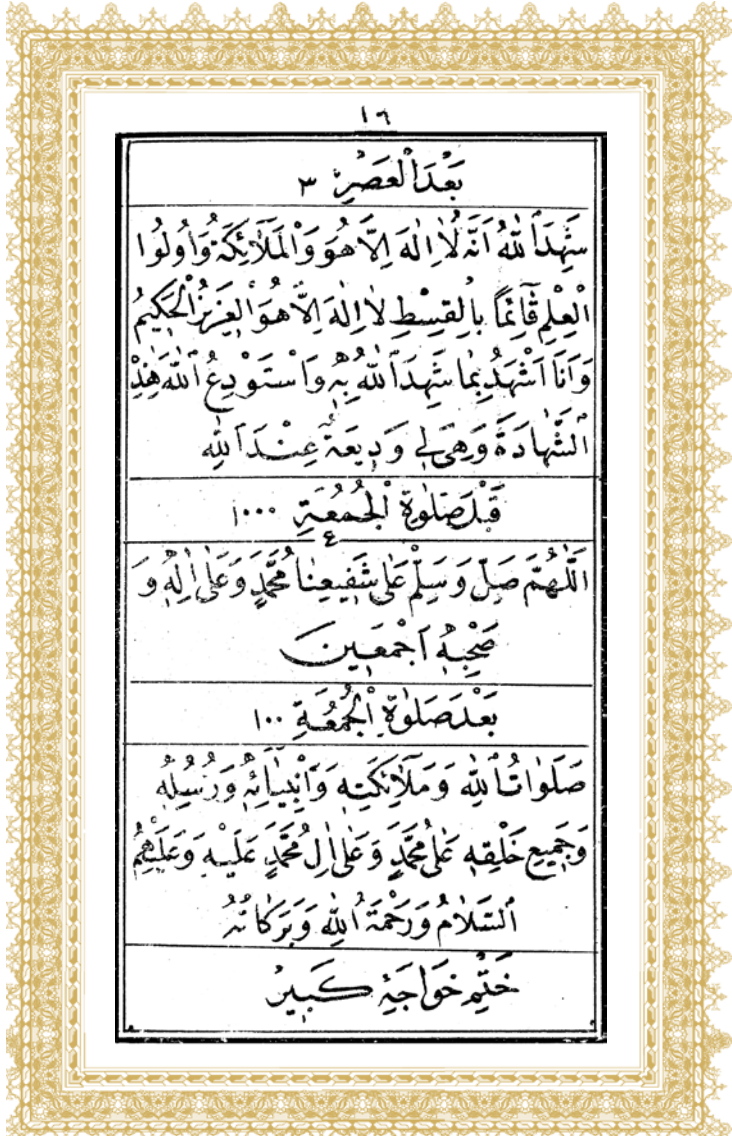 ١٦
بَعْدَ الْعَصْرِ ٣
شَهِدَ اللّٰهُ اَنَّهُ لَا اِلٰهَ اِلَّا هُوَ وَالْمَلَٓائِكَةُ وَاُولُوا
الْعِلْمِ قَٓائِمًا بِالْقِسْطِ لَا اِلٰهَ اِلَّا هُوَ الْعَزِيزُ الْحَكِيمُ
وَاَنَا اَشْهَدُ بِمَا شَهِدَ اللّٰهُ بِهٖ وَاَسْتَوْدِعُ اللّٰهَ هٰذِهِ
الشَّهَادَةَ وَهِىَ لِى وَدِيعَةٌ عِنْدَ اللّٰهِ
قَبْلَ صَلٰوةِ الْجُمُعَةِ ١٠٠٠
اَللّٰهُمَّ صَلِّ وَسَلِّمْ عَلٰى شَفِيعِنَا مُحَمَّدٍ وَعَلٰى اٰلِهٖ وَ
صَحْبِهٖ اَجْمَعِينَ
بَعْدَ صَلٰوةِ الْجُمُعَةِ ١٠٠
صَلَوَاتُ اللّٰهِ وَمَلَٓائِكَتِهٖ وَاَنْبِيَٓائِهٖ وَرُسُلِهٖ
وَجَمِيعِ خَلْقِهٖ عَلٰى مُحَمَّدٍ وَعَلٰى اٰلِ مُحَمَّدٍ عَلَيْهِ وَعَلَيْهِمُ
السَّلَامُ وَرَحْمَةُ اللّٰهِ وَبَرَكَاتُهُ
خَتْمِ خَوَاجَهِٔ كَبِيرْ